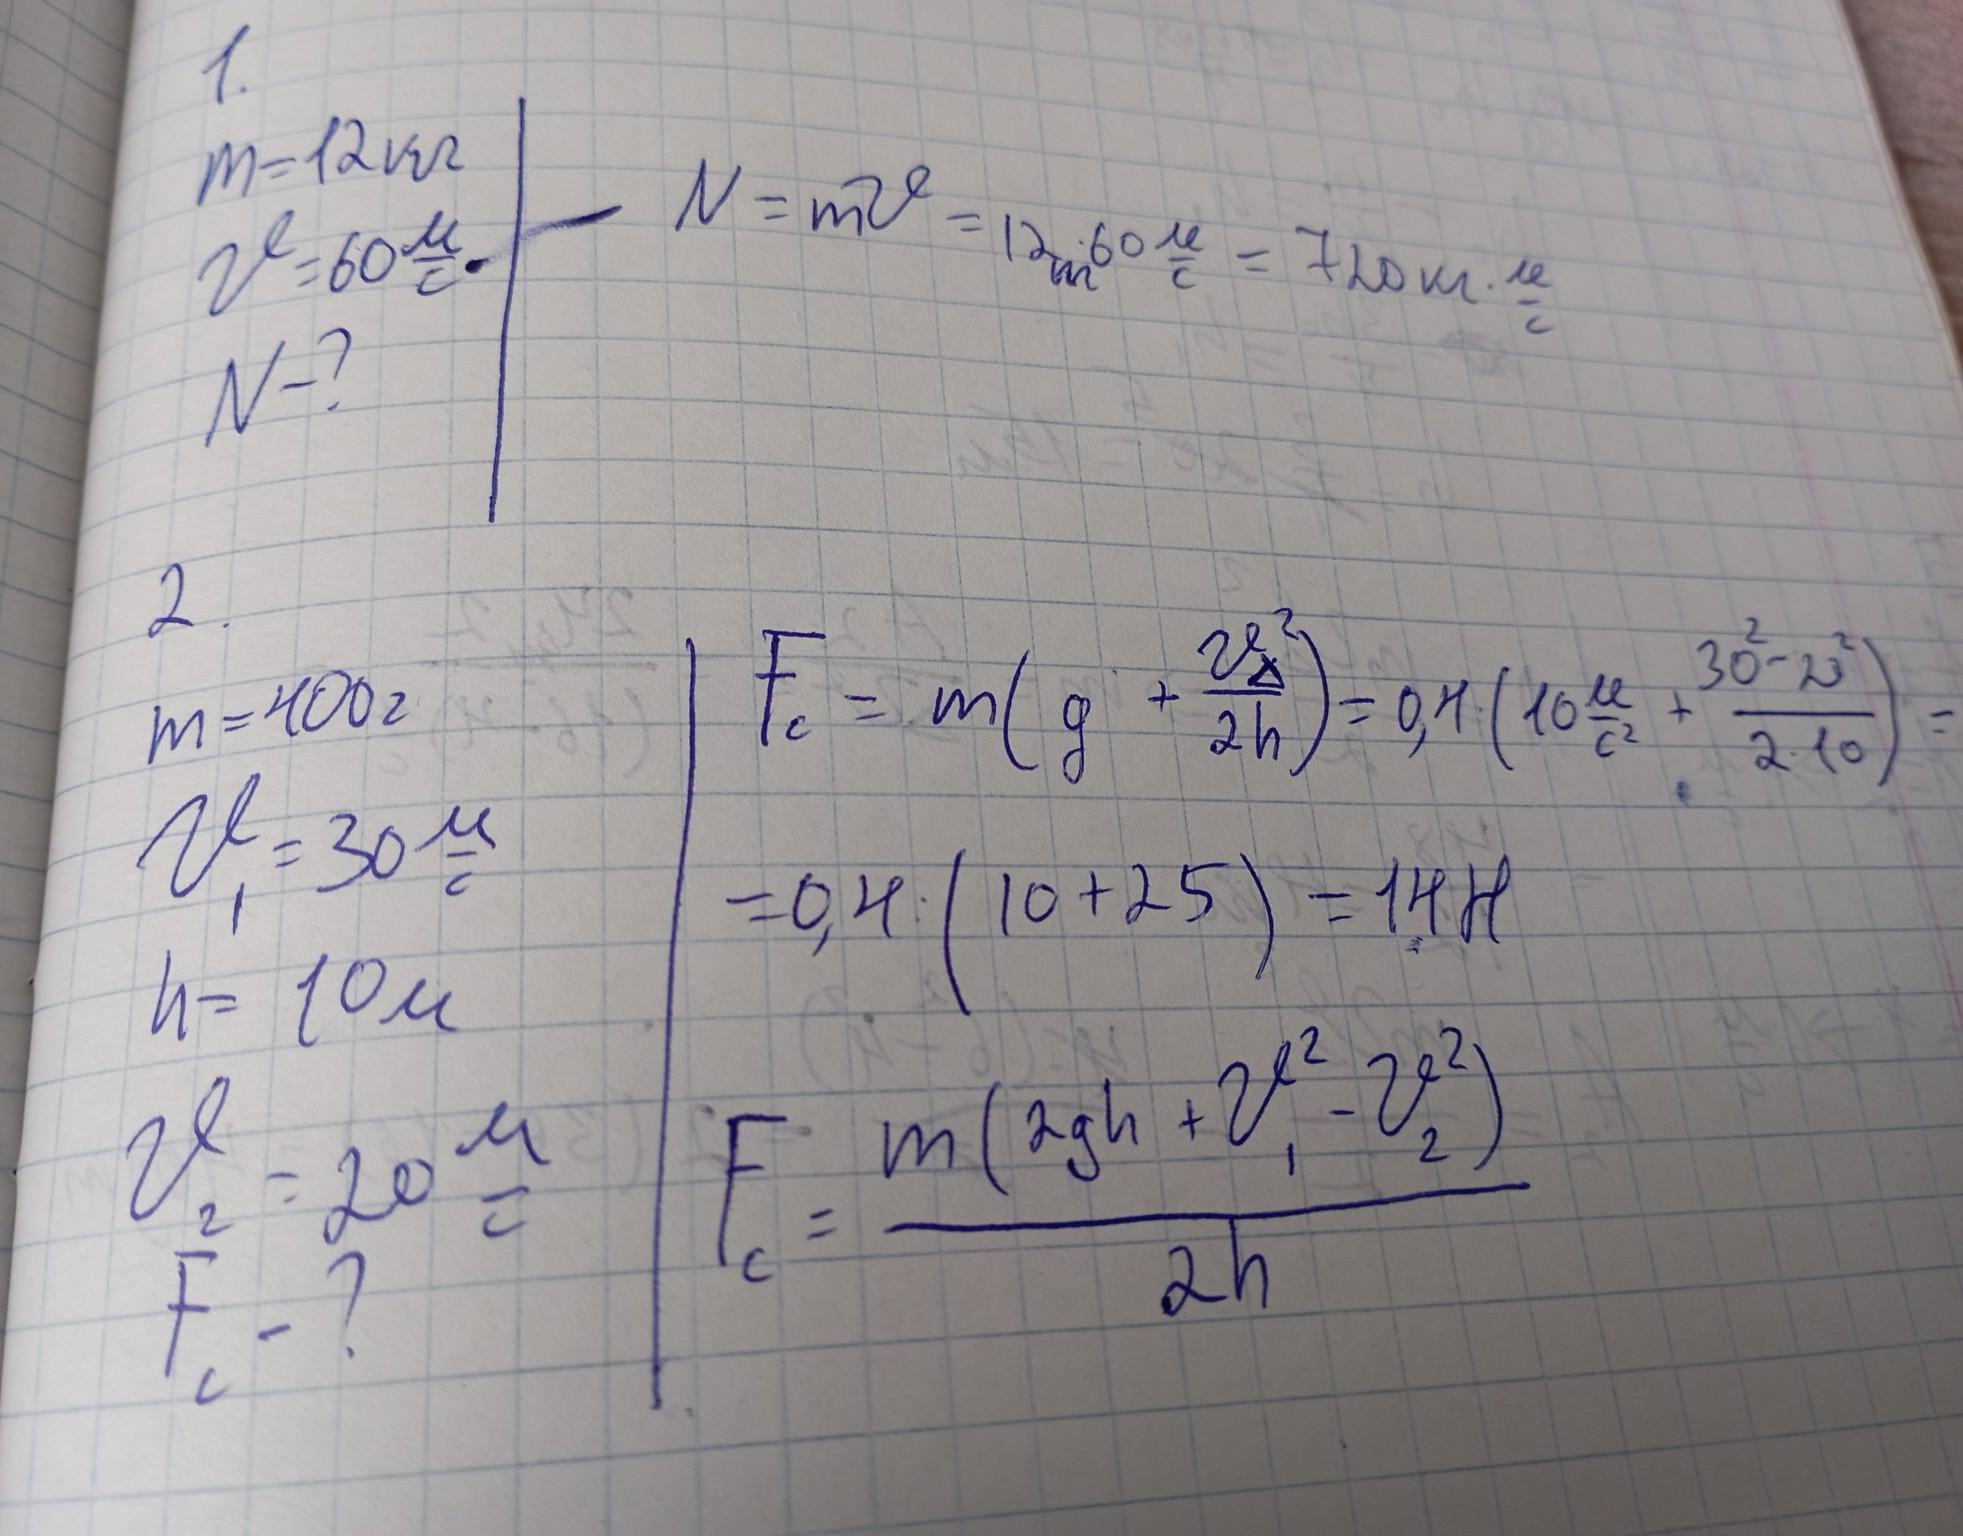 1.
m=12кг
v=60 м/с
N-?
N = mv = 12m·60 м/с = 720кг·м/с
2.
m=400г
v₁=30 м/с
h= 10м
v₂=20 м/с
Fс-?
Fс = m(g + v²/2h) = 0,4·(10 м/с² + (30²-20²)/(2·10)) =
=0,4·(10+25)=14Н
Fс = m(2gh + v₁² - v₂²)/2h